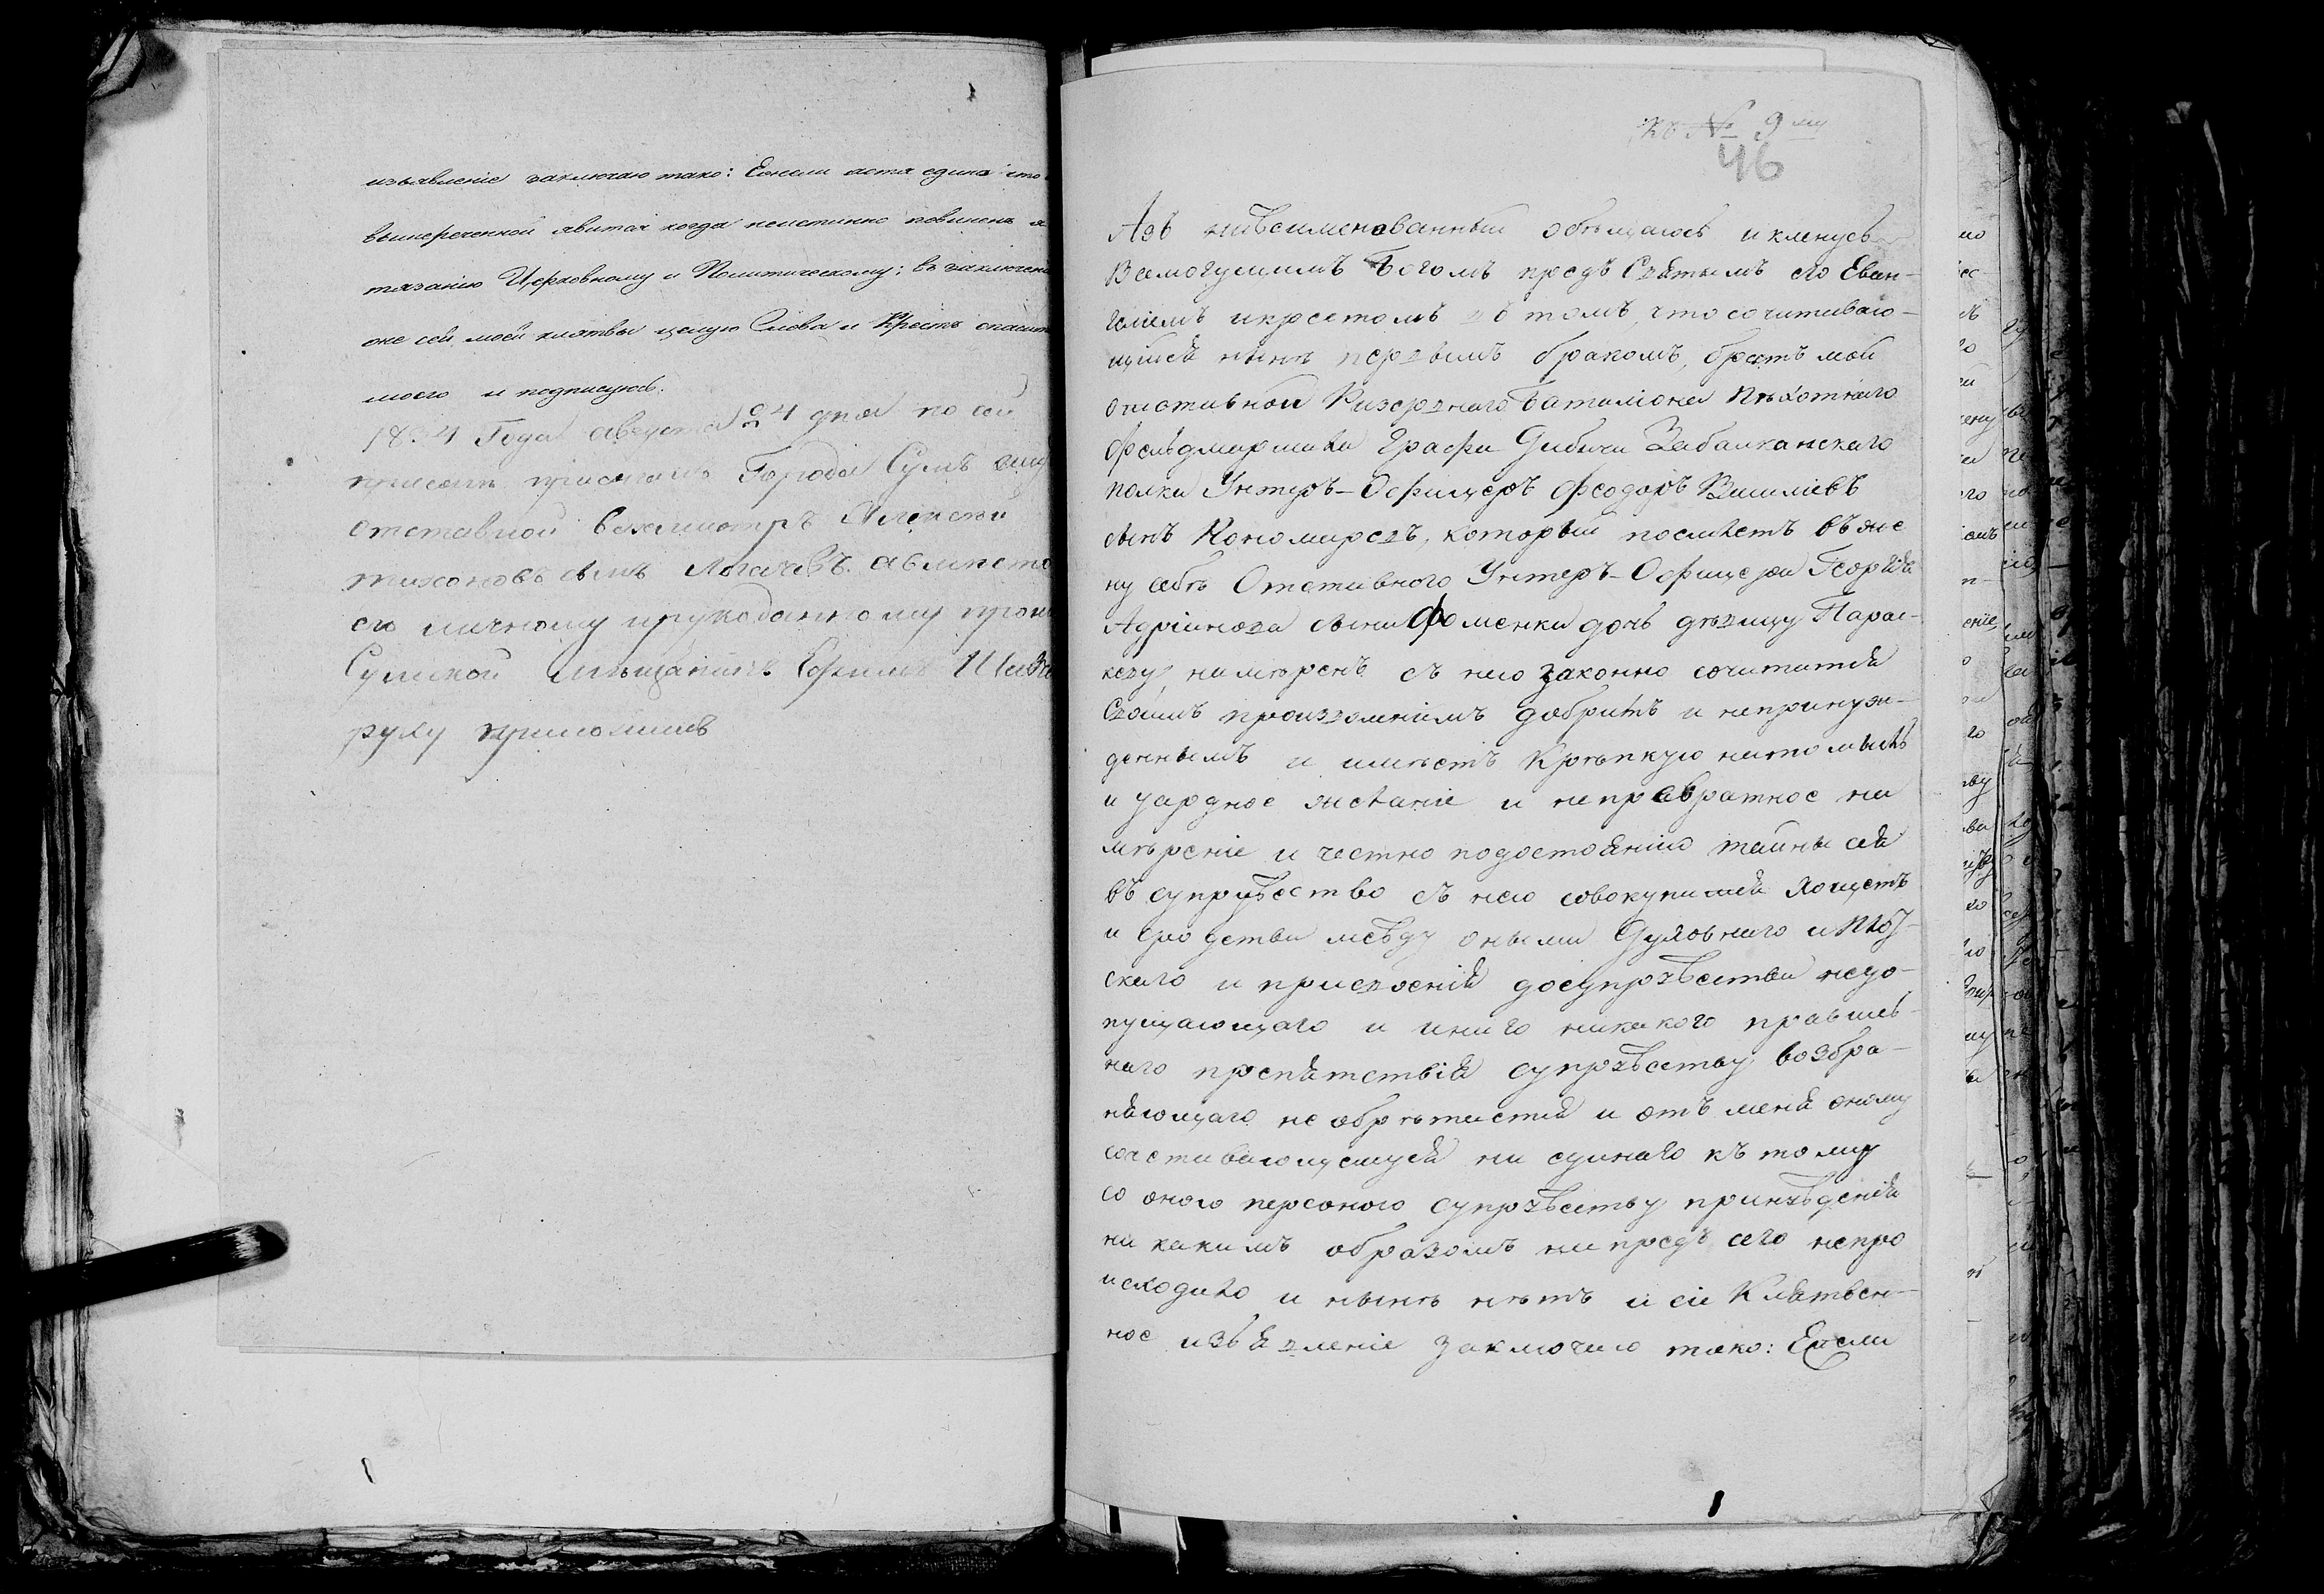 изъявленіе заключаю тако: Ежели хотя едина что
вышереченной явится когда неистинно повиненъ я
тязанію Церковному и Политическому; въ заключені
же сей моей клятвы целую Слова и Крестъ спасит
моего и подписуюсь.
1834 Года августа 24 дня по сей
присягѣ присягалъ Города Сумъ
отставной вахмистръ Алексѣй
тихоновъ сынъ Логачевъ а вмѣсто
его личному и рукоданному прош
Сумской мѣщанинъ Ефимъ
руку приложилъ
къ № 9му
46
Азъ нижеименованный обѣщаюсь и кленусь
Всемогущимъ Богомъ предъ Святымъ его Еван-
геліемъ и крестомъ въ томъ, что сочитаваю-
щійся нынѣ первымъ бракомъ, братъ мой
отставной Резервнаго Баталіона Пѣхотнаго
Фельдмаршала Графа Дибича Забалканскаго
полка Унтеръ-Офицеръ Феодоръ Василіевъ
сынъ Кономаревъ, который поемлетъ въ же
ну себѣ Отставного Унтеръ-Офицера Георгія
Адріянова сына Фоменки дочь дѣвицу Парас-
кеву, намѣренъ съ нею законно сочитатся
Своимъ произволеніемъ добрымъ и непринуж-
деннымъ и имѣетъ Крѣпкую на то мысль
и усердное желаніе и непревратное на
мѣреніе и честно по достоянію тайны сея
въ супружество съ нею совокупится хощетъ
и сродства между оными Духовнаго и плот-
скаго и присвоенія до супружества недо-
пущающаго и инаго никакого правиль-
наго препятствія супружеству возбра-
няющаго не обрѣтается и отъ меня оному
сочетавающемуся ни единаго къ тому
со оною персоною супружеству принуждения
никакимъ образомъ ни предъ сего непро
исходило и нынѣ нѣтъ и сіе Клятвен-
ное изъявленіе заключаю тако: Ежели